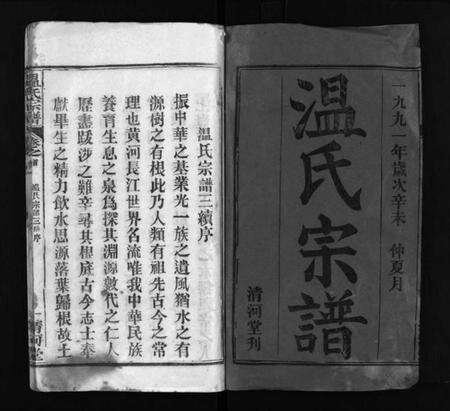 一九九一年歲次辛未 仲夏月
温氏宗譜
清河堂刊
温氏宗譜三續序
振中華之基業光一族之遺風猶水之有
源樹之有根此乃人類有祖先古今之常
理也黄河長江世界名流唯我中華民族
養育生息之泉爲探其淵源數代之仁人
歷盡跋涉之難辛尋其根底古今志士奉
獻畢生之精力飲水思源落葉歸根故土
温氏宗譜 卷之首 温氏宗譜三續序 清河堂